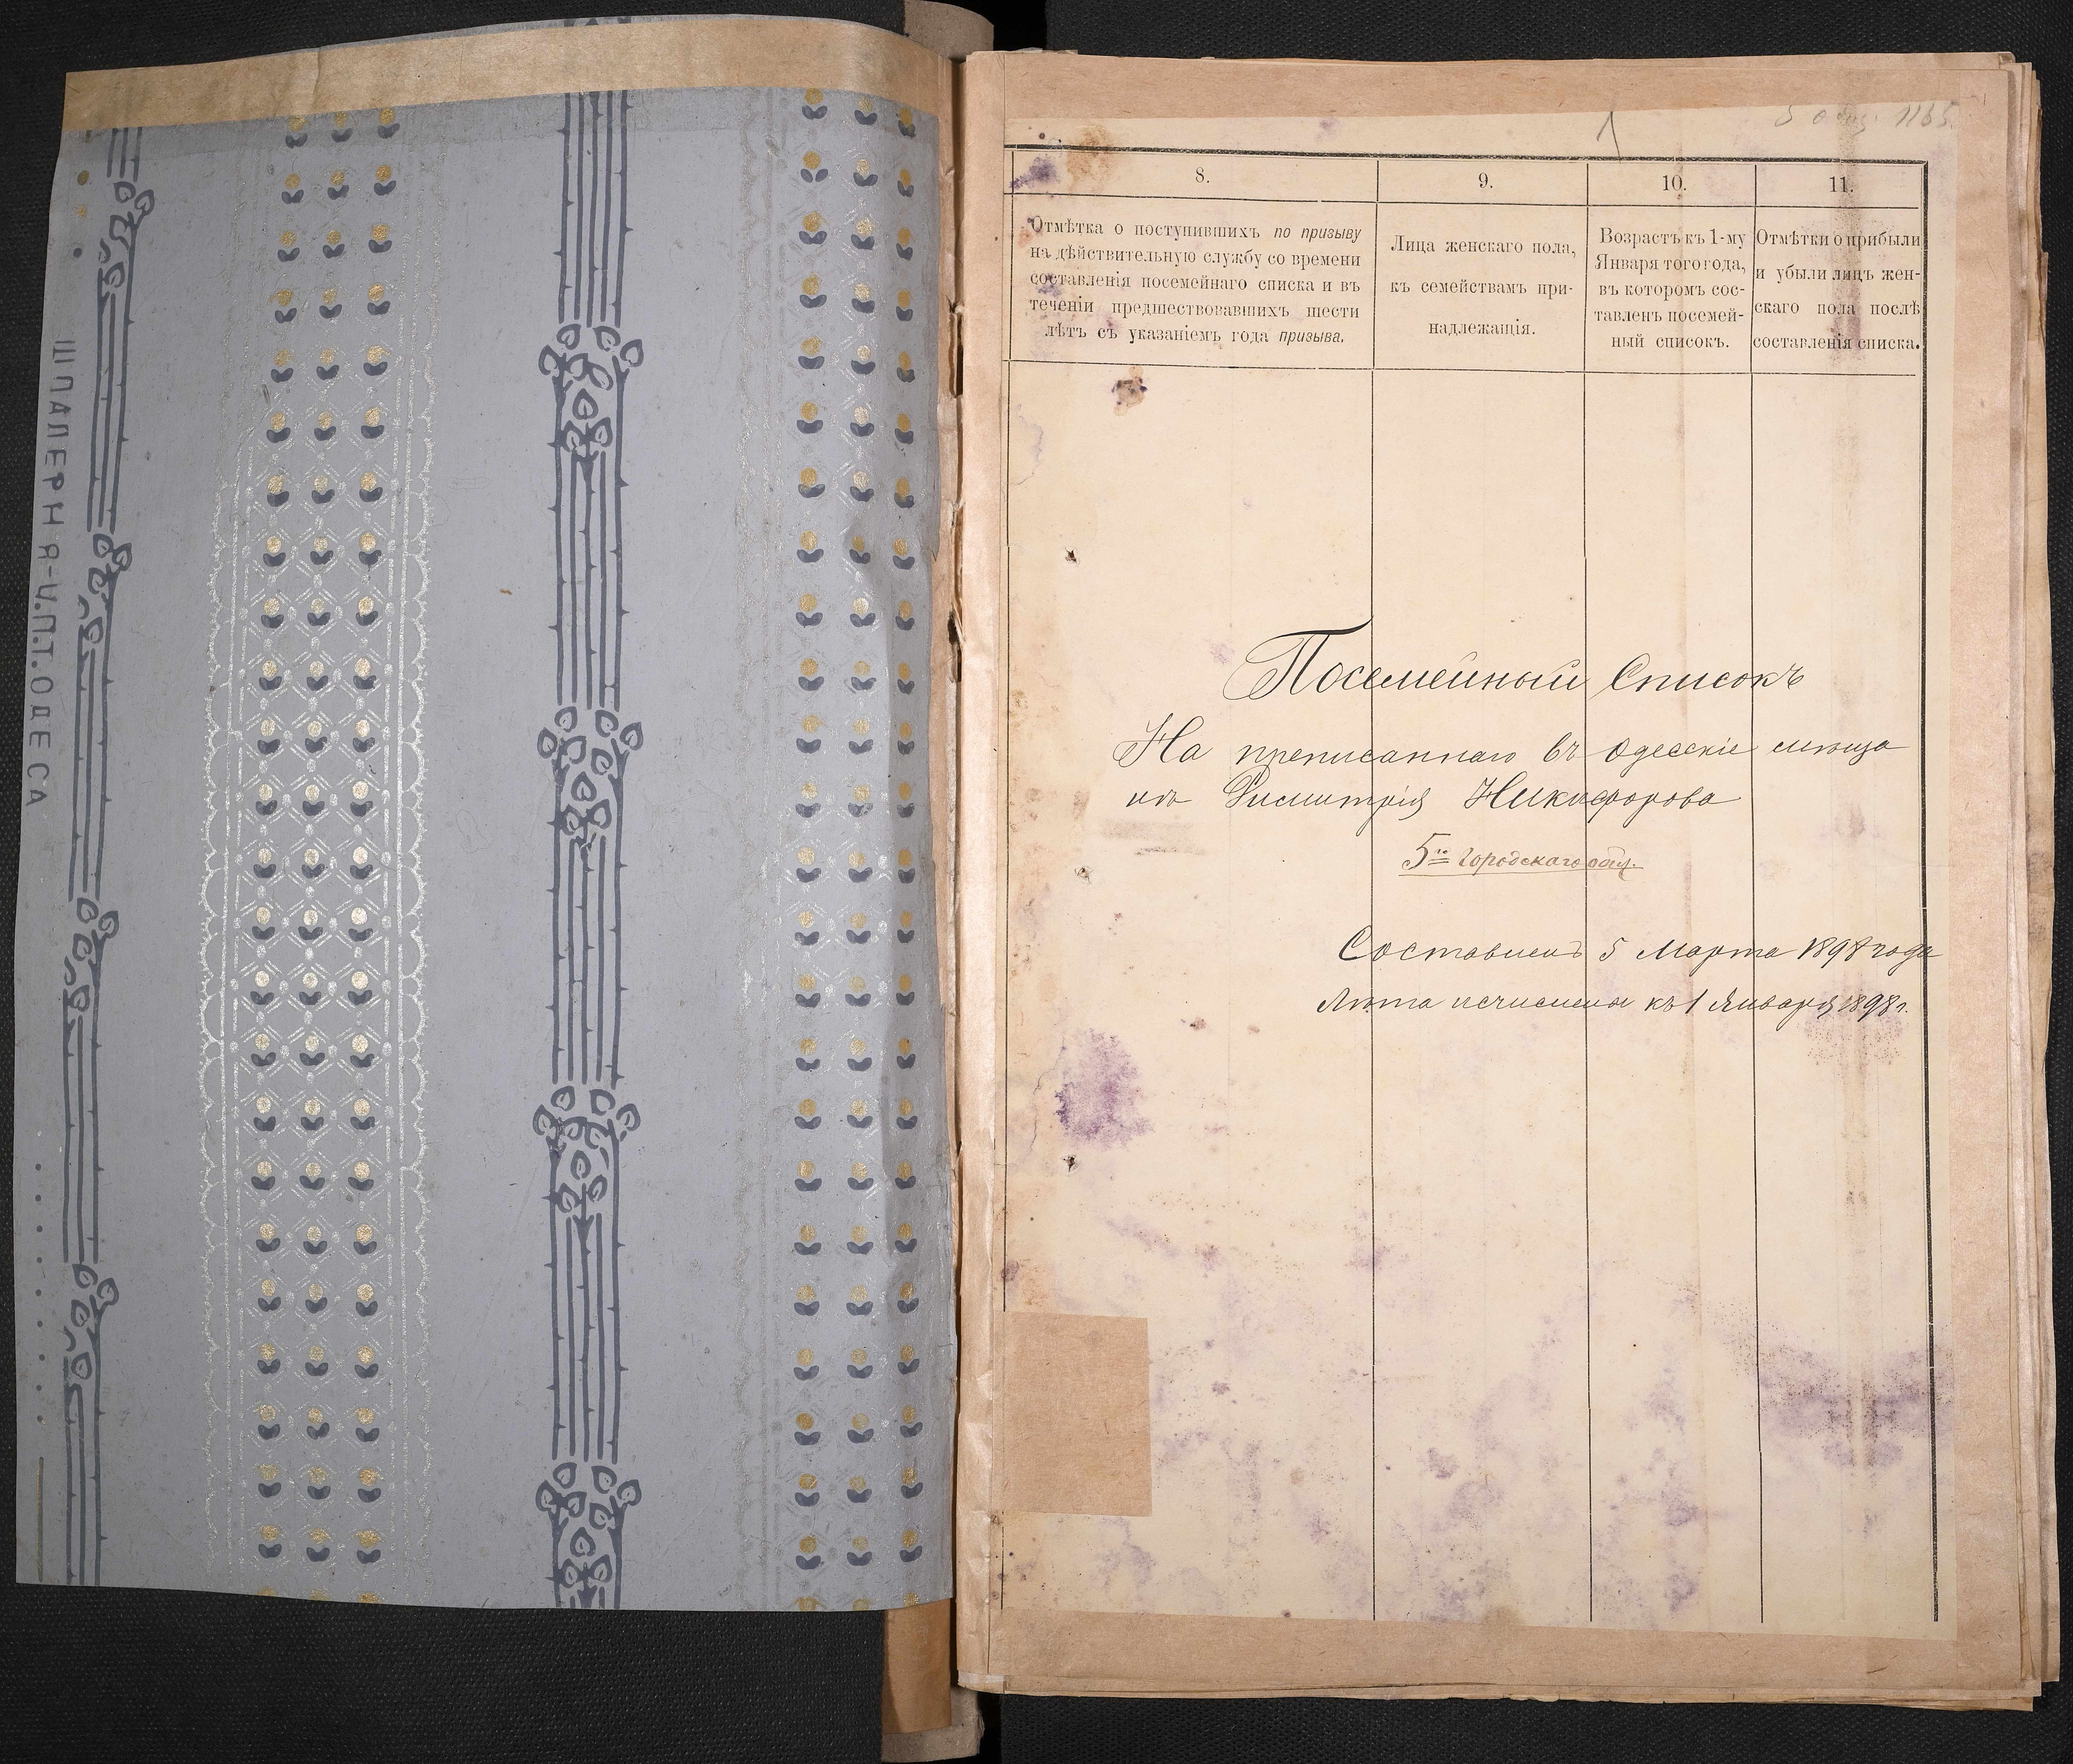 ШПАЛЕРНЯ-Ц.П.Т.ОДЕСА
1
5 1165
8.
9.
10.
11.
Отмѣтка о поступившихъ по призыву
на дѣйствительную службу со времени
составленія посемейнаго списка и въ
теченіи предшествовавшихъ шести
лѣтъ съ указаніемъ года призыва.
Лица женскаго пола,
къ семействамъ при-
надлежащія.
Возрастъ къ 1-му
Января того года,
въ котором сос-
тавленъ посемей-
ный списокъ.
Отмѣтки о прибыли
и убыли лицъ жен-
скаго пола послѣ
составленія списка.
Посемейный Списокъ
На преписаннаго въ Одесскіе мѣща
не Димитрія Никифорова
5го Городскаго общ.
Составленъ 5 Марта 1898 года
Лѣта исчислены къ 1 Января 1898 г.